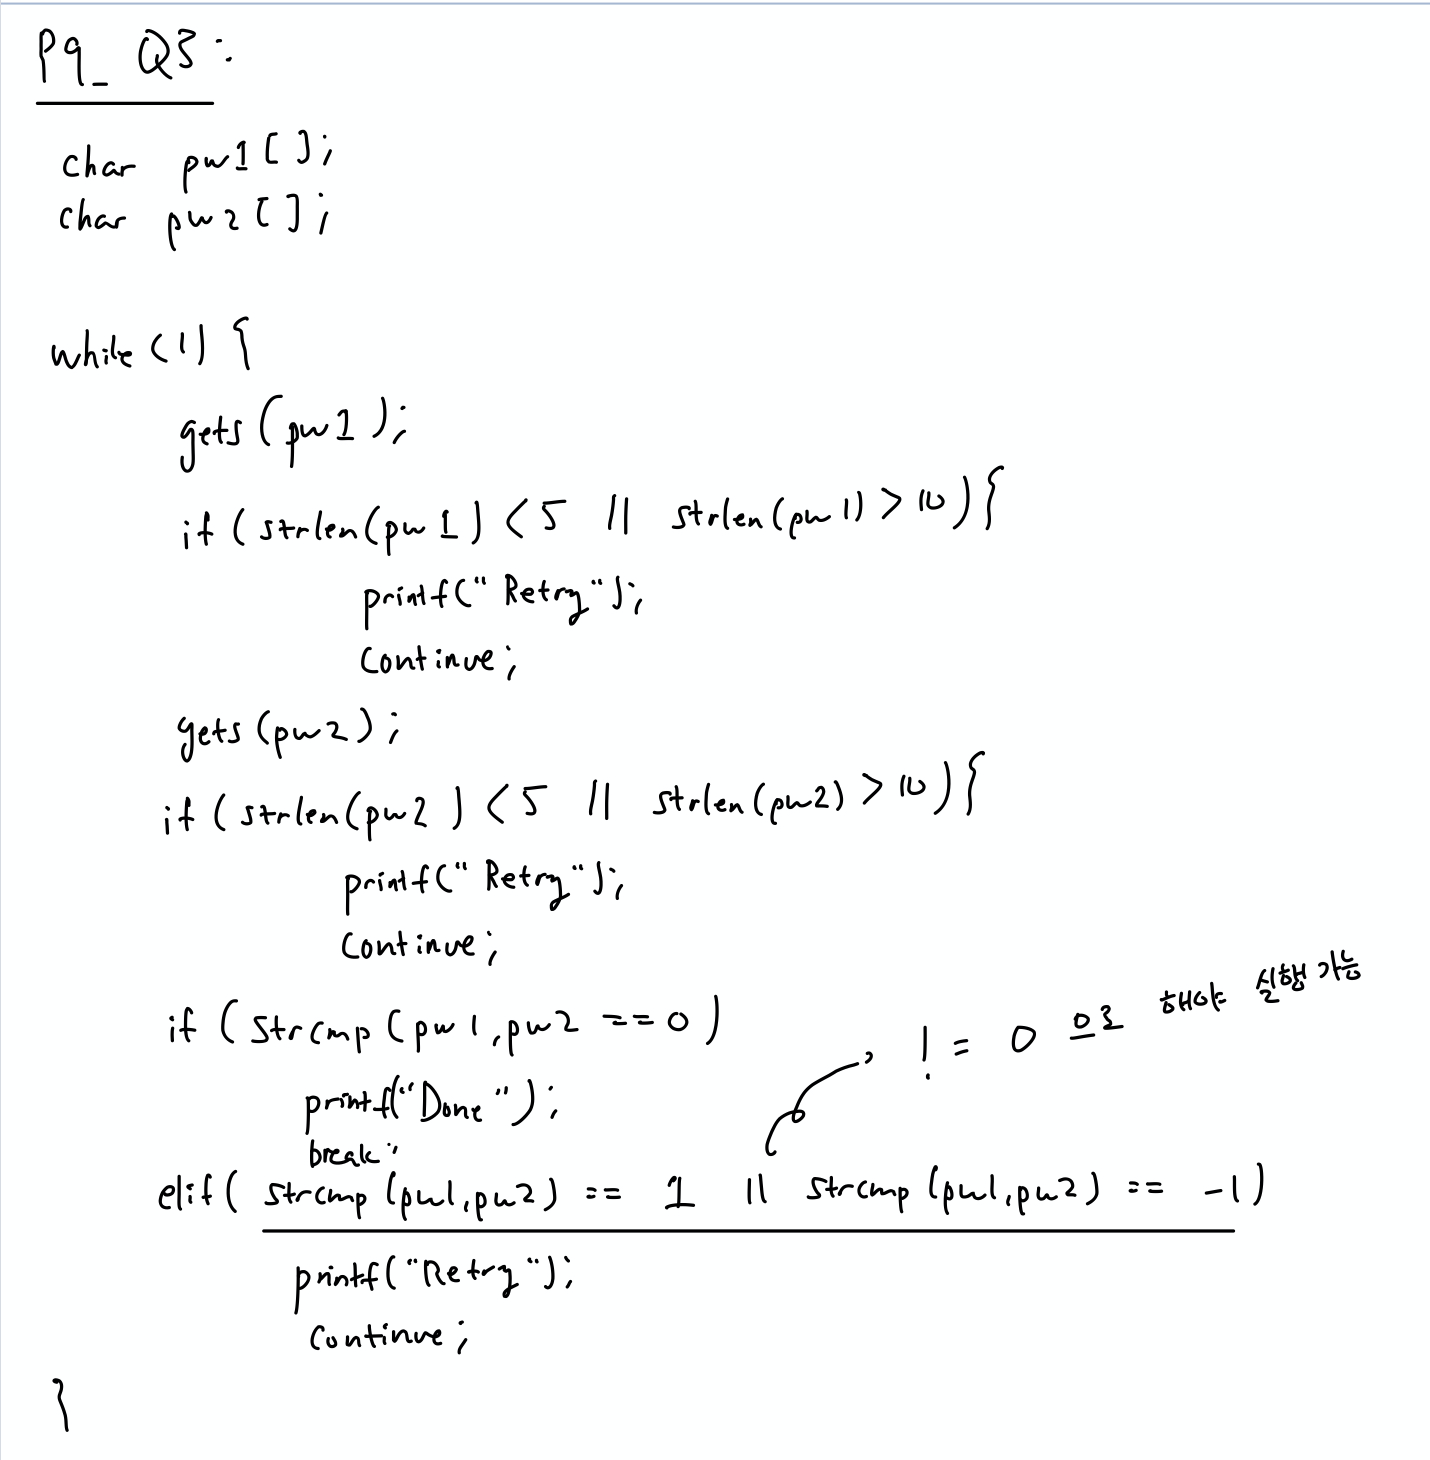 P9_ Q3:
char pw1[];
char pw2[];
while(1){
gets(pw1);
if(strlen(pw1)<5 || strlen(pw1)>10){
printf("Retry");
Continue;
gets(pw2);
if(strlen(pw2)<5 || strlen(pw2)>10){
printf("Retry");
Continue;
if(strcmp(pw1,pw2 ==0)
!= 0 으로 해야 실행 가능
printf("Done");
break;
elif(strcmp(pw1,pw2) == 1 || strcmp(pw1,pw2) == -1)
printf("Retry");
Continue;
}